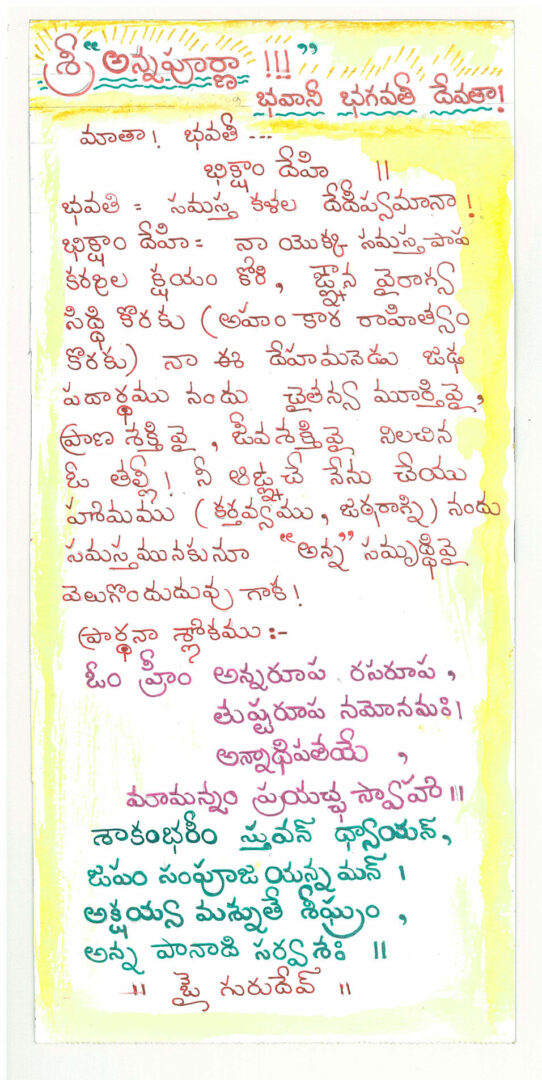 శ్రీ “అన్నపూర్ణా !!!”
భవానీ భగవతీ దేవతా!
మాతా! భవతీ ...
భిక్షాం దేహి ||
భవతి = సమస్త కళల దేదీప్యమానా!
భిక్షాం దేహి = నా యొక్క సమస్త పాప
కర్మల క్షయం కోరి, జ్ఞాన వైరాగ్య
సిద్ధి కొరకు (అహం కార రాహిత్యం
కొరకు) నా ఈ దేహమనెడు జఢ
పదార్థము నందు చైతన్య మూర్తివై,
ప్రాణ శక్తివై, జీవశక్తివై నిలచిన
ఓ తల్లీ! నీ ఆజ్ఞచే నేను చేయు
హోమము (కర్తవ్యము, జఠరాగ్ని) నందు
సమస్తమునకునూ “అన్న” సమృద్ధివై
వెలుగొందుదువు గాక!
ప్రార్థనా శ్లోకము :-
ఓం హ్రీం అన్నరూప రసరూప,
తుష్టరూప నమోనమః।
అన్నాధిపతయే ,
మామన్నం ప్రయచ్ఛ స్వాహా ||
శాకంభరీం స్తువన్ ధ్యాయన్,
జపం సంపూజ యన్నమన్ ।
అక్షయ్య మశ్నుతే శీఘ్రం ,
అన్న పానాది సర్వశః ||
|| జై గురుదేవ్ ||